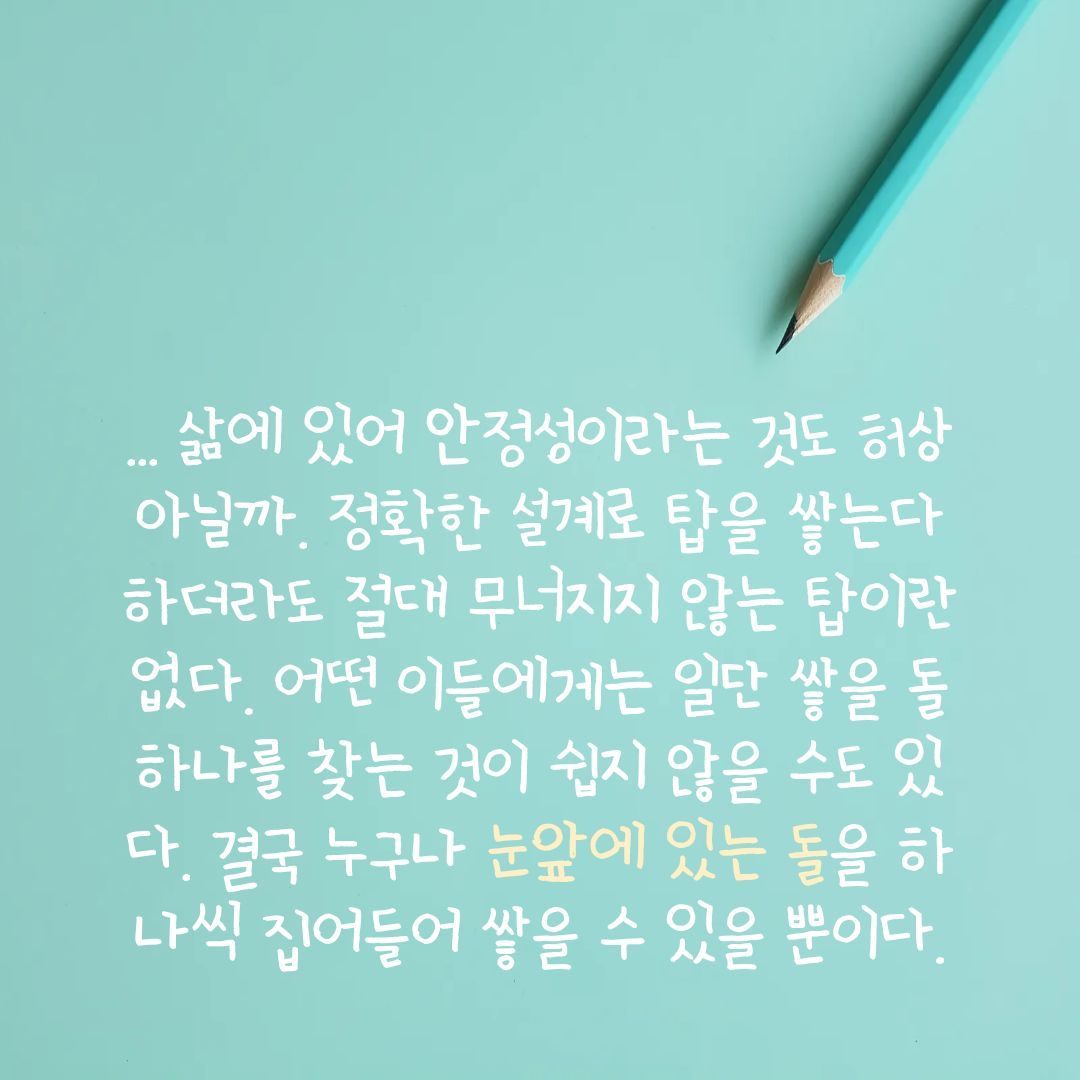 ... 삶에 있어 안정성이라는 것도 허상
아닐까. 정확한 설계로 탑을 쌓는다
하더라도 절대 무너지지 않는 탑이란
없다. 어떤 이들에게는 일단 쌓을 돌
하나를 찾는 것이 쉽지 않을 수도 있
다. 결국 누구나 눈앞에 있는 돌을 하
나씩 집어들어 쌓을 수 있을 뿐이다.